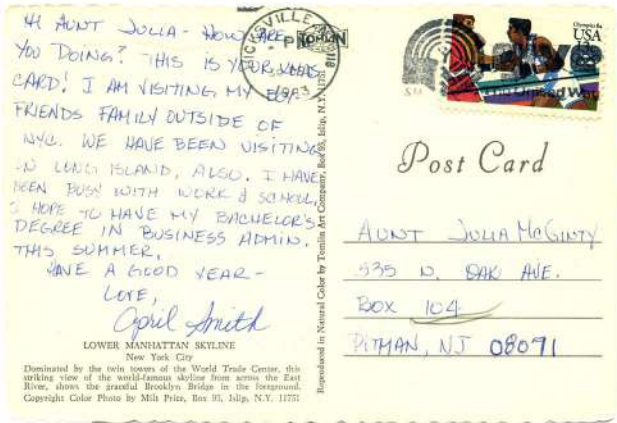 HI AUNT JULIA - HOW ARE
YOU DOING? THIS IS YOUR XMAS
CARD! I AM VISITING MY BOY-
FRIENDS FAMILY OUTSIDE OF
NYC. WE HAVE BEEN VISITING
IN LONG ISLAND, ALSO. I HAVE
BEEN BUSY WITH WORK & SCHOOL.
I HOPE TO HAVE MY BACHELOR'S
DEGREE IN BUSINESS ADMIN.
THIS SUMMER.
HAVE A GOOD YEAR -
LOVE,
April Smith
LOWER MANHATTAN SKYLINE
New York City
Dominated by the twin towers of the World Trade Center, this
striking view of the world-famous skyline from across the East
River, shows the graceful Brooklyn Bridge in the foreground.
Copyright Color Photo by Milt Price, Box 93, Islip, N.Y. 11751
Reproduced in Natural Color by Tomlin Art Company, Box 93, Islip, N.Y. 11751
HICKSVILLE
PM
1983
Olympics 84
USA
13c
Post Card
AUNT JULIA McGINTY
535 N. OAK AVE.
BOX 104
PITMAN, NJ 08071